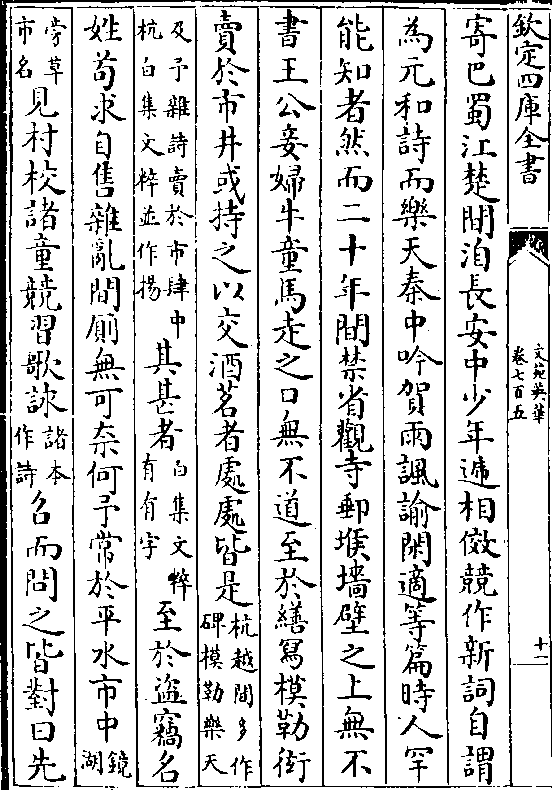 欽定四庫全書
文苑英華
卷七百五
十一
寄巴蜀江楚間洎長安中少年遞相傚競作新詞自謂
為元和詩而樂天秦中吟賀雨諷諭閑適等篇時人罕
能知者然而二十年間禁省觀寺郵堠墻壁之上無不
書王公妾婦牛童馬走之口無不道至於繕寫模勒衒
賣於市井或持之以交酒茗者處處皆是杭越間多作碑模勒樂天
及予雜詩賣於市肆中杭白集文粹並作揚其甚者白集文粹有有字至於盜竊名
姓苟求自售雜亂間厠無可奈何予常於平水市中鏡湖
旁草市名見村校諸童競習歌詠諸本作詩召而問之皆對曰先